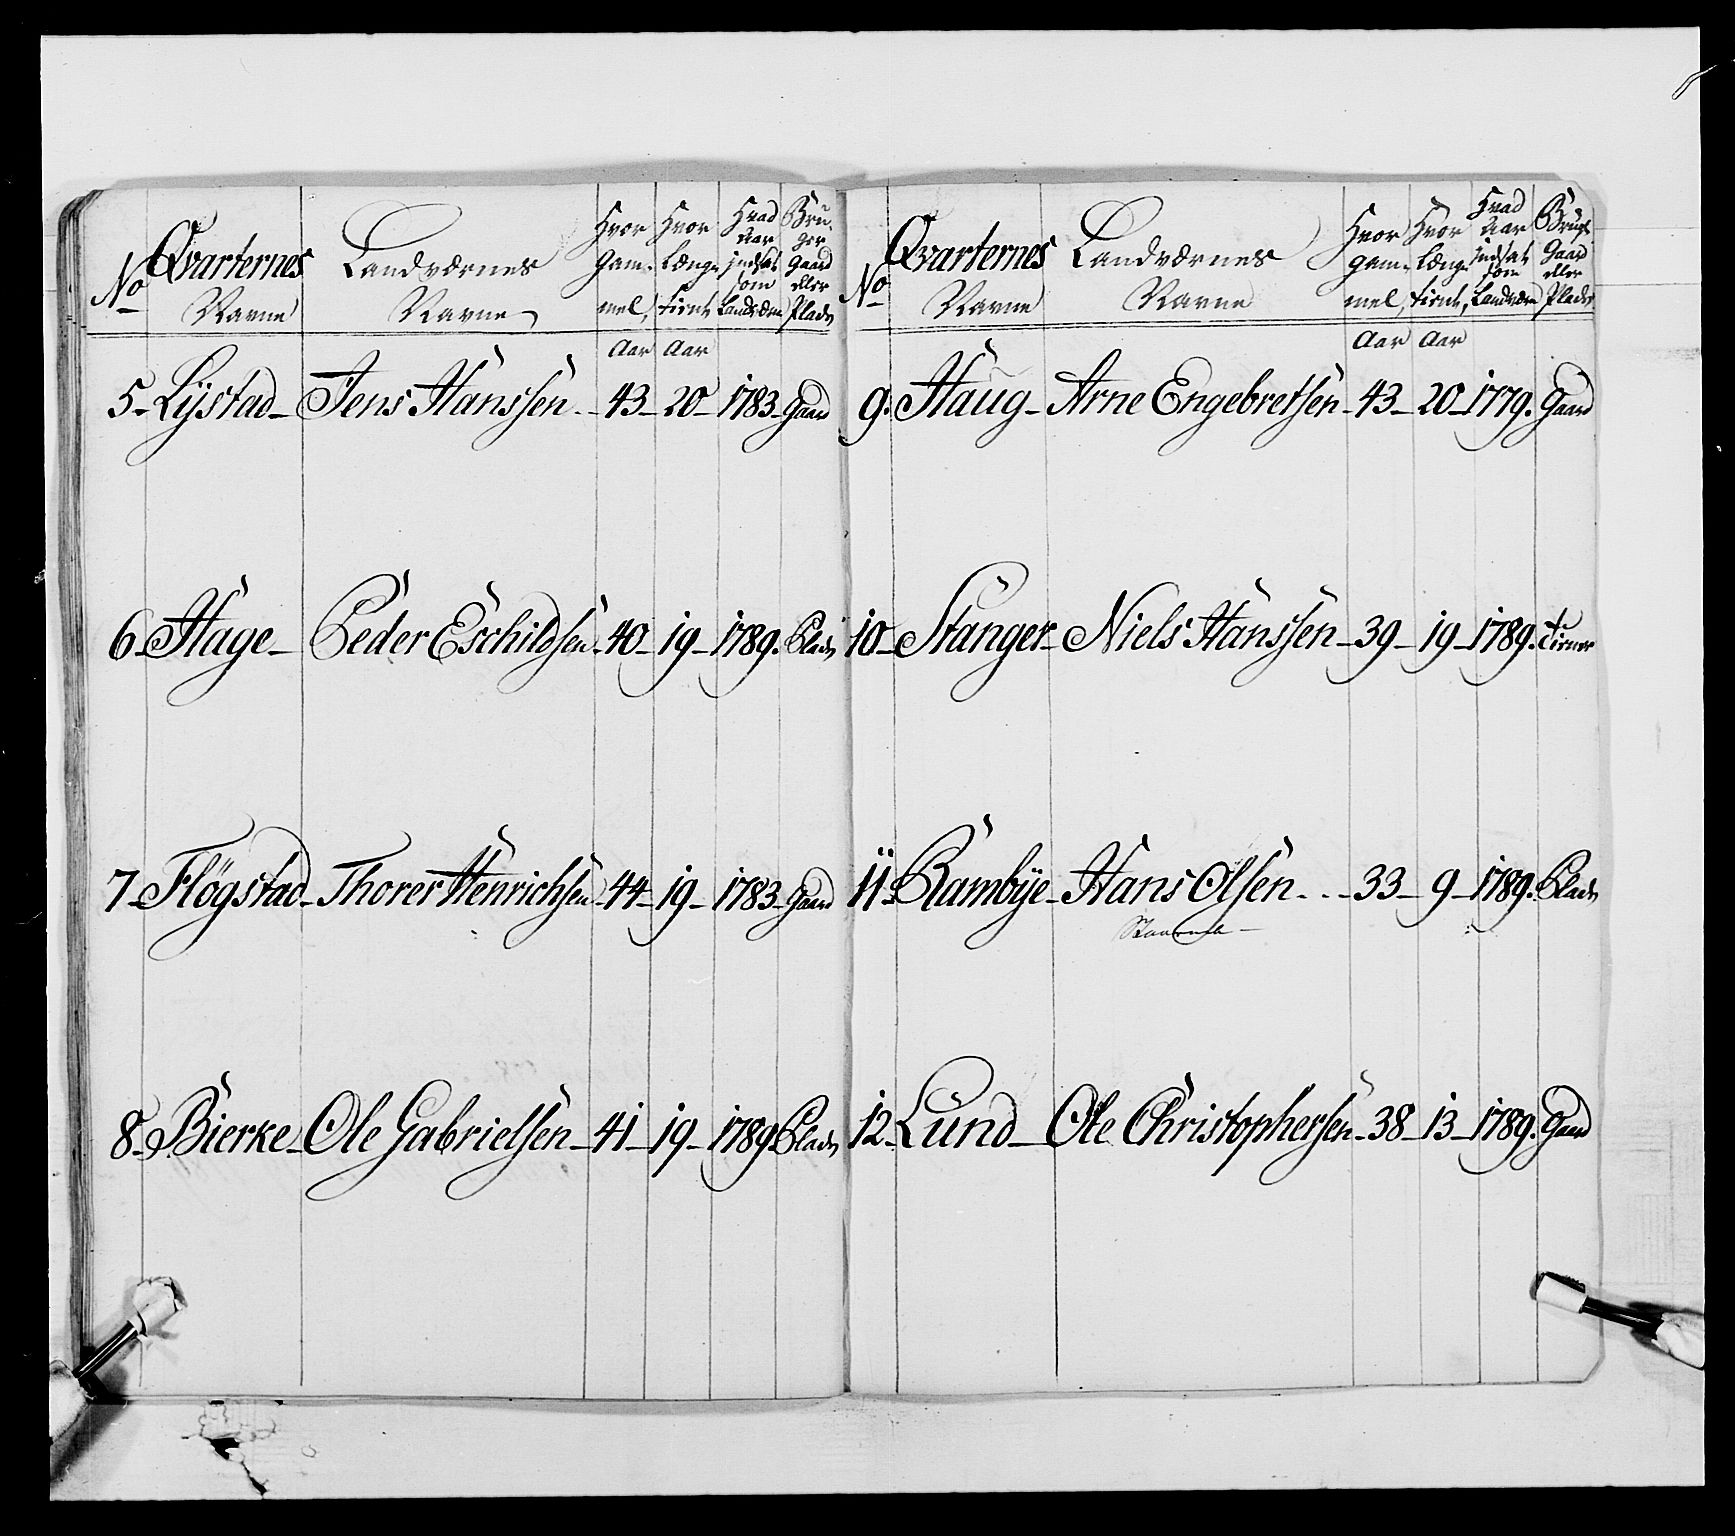 No Qvarternes Navne Landværnes Navne Hvor Gam- mel, Hvor Længe tient Hvad Aar indsat som Landværn Bru- ger Gaard eller Plads
Aar Aar
5 - Lÿstad - Jens Hanssen - 43 - 20 - 1783 - Gaard
6 - Hage - Peder Eschildsen - 40 - 19 - 1789. Plads
7 - Flögstad - Thorer Henrichsen - 44 - 19 - 1783 - Gaard
8 - Bierke - Ole Gabrielsen - 41 - 19 - 1789 Plads
No Qvarternes Navne Landværnes Navne Hvor gam- mel, Hvor Længe tient, Hvad Aar indsat som Landværn Brugr Gaard eller Plads
Aar Aar
9. Haug - Arne Engebretsen - 43 - 20 - 1779. Gaard
10 - Stanger - Niels Hanssen - 39 - 19 - 1789. Tiener
11 - Rambÿe - Hans Olsen - 33 - 9 - 1789. Plads
12 - Lund - Ole Christophersen - 38 - 13 - 1789. Gaard